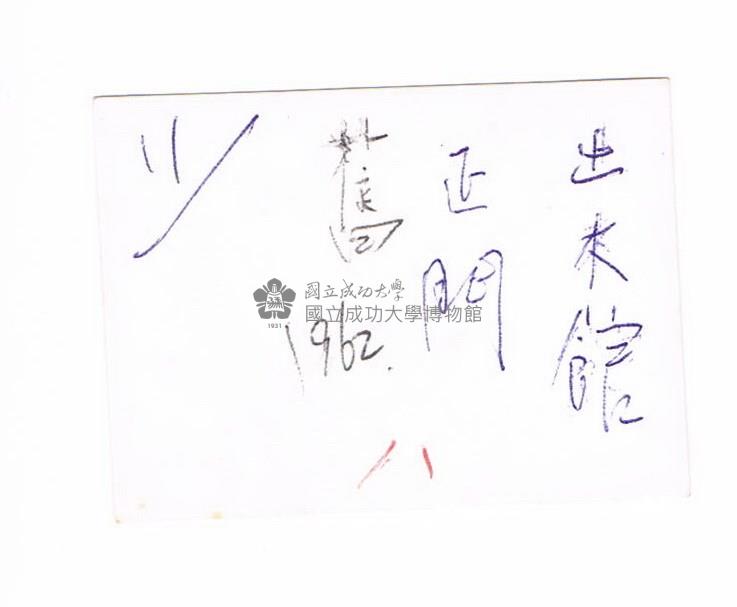 土木館
正門
1962.
八
國立成功大學
國立成功大學博物館
1931